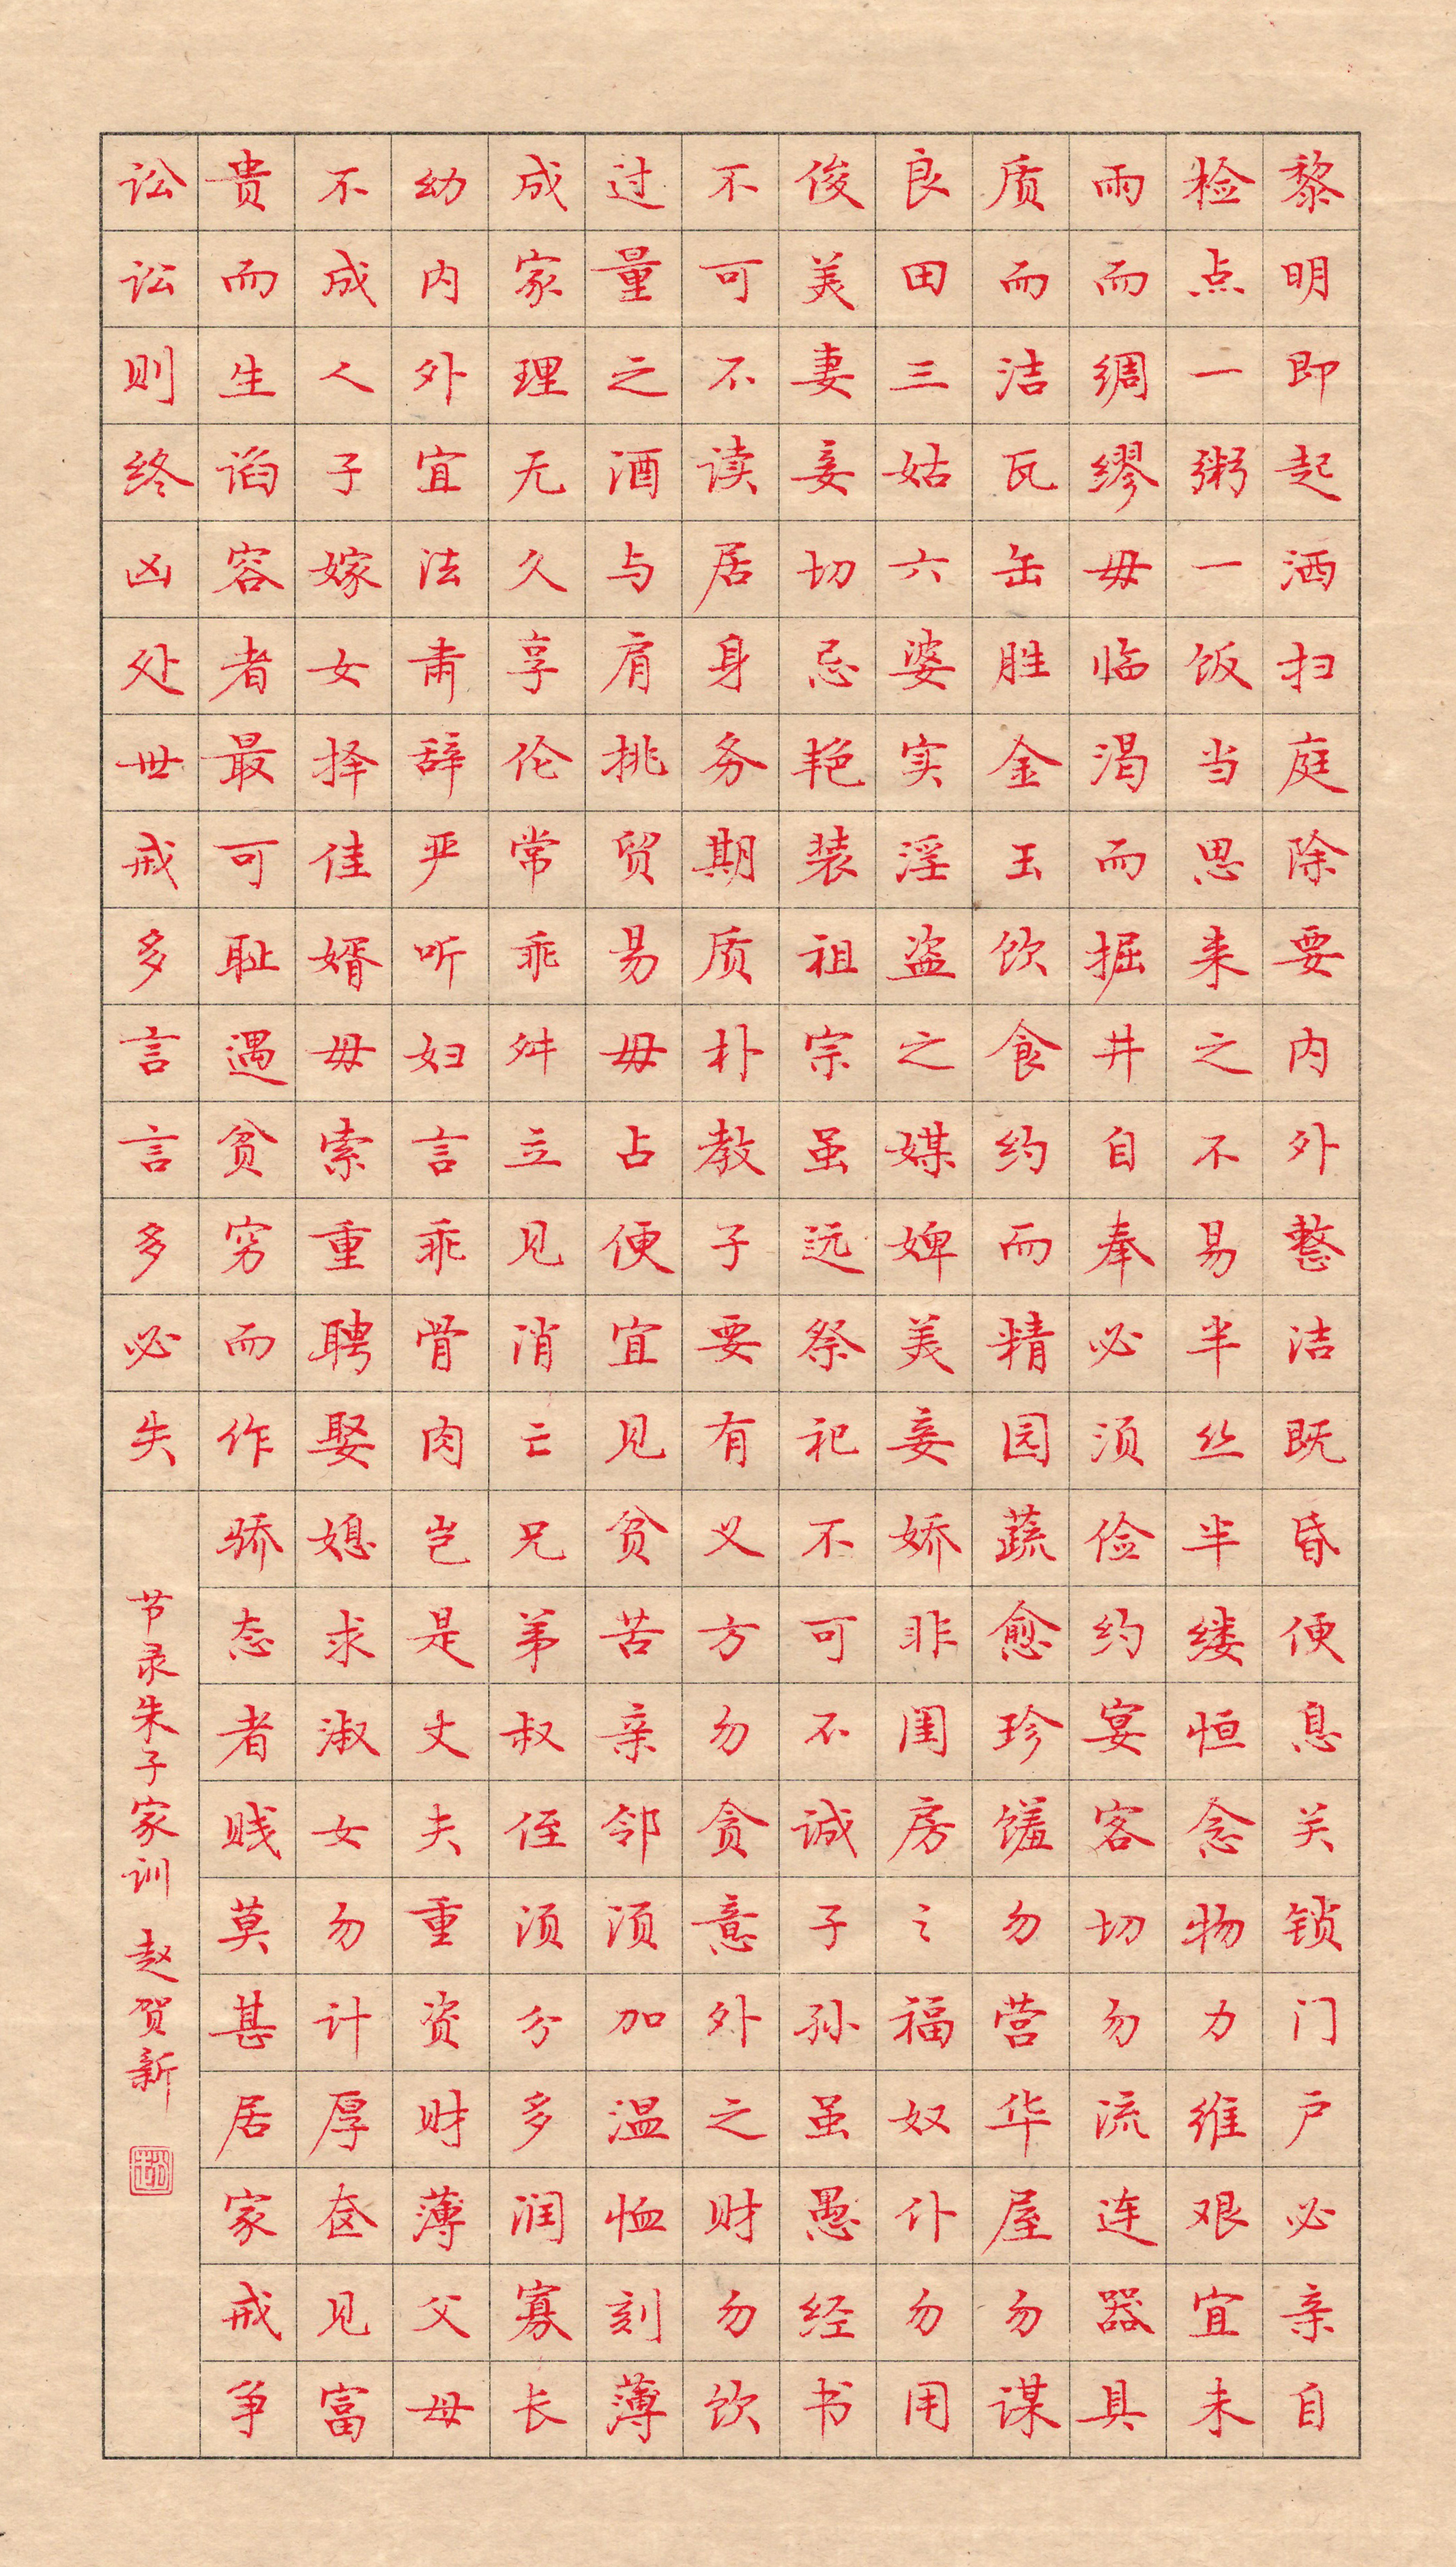 黎明即起洒扫庭除要内外整洁既昏便息关锁门户必亲自
检点一粥一饭当思来之不易半丝半缕恒念物力维艰宜未
雨而绸缪毋临渴而掘井自奉必须俭约宴客切勿流连器具
质而洁瓦缶胜金玉饮食约而精园蔬愈珍馐勿营华屋勿谋
良田三姑六婆实淫盗之媒婢美妾娇非闺房之福奴仆勿用
俊美妻妾切忌艳装祖宗虽远祭祀不可不诚子孙虽愚经书
不可不读居身务期质朴教子要有义方勿贪意外之财勿饮
过量之酒与肩挑贸易毋占便宜见贫苦亲邻须加温恤刻薄
成家理无久享伦常乖舛立见消亡兄弟叔侄须分多润寡长
幼内外宜法肃辞严听妇言乖骨肉岂是丈夫重资财薄父母
不成人子嫁女择佳婿毋索重聘娶媳求淑女勿计厚奁见富
贵而生谄容者最可耻遇贫穷而作骄态者贱莫甚居家戒争
讼讼则终凶处世戒多言言多必失
节录朱子家训 赵贺新